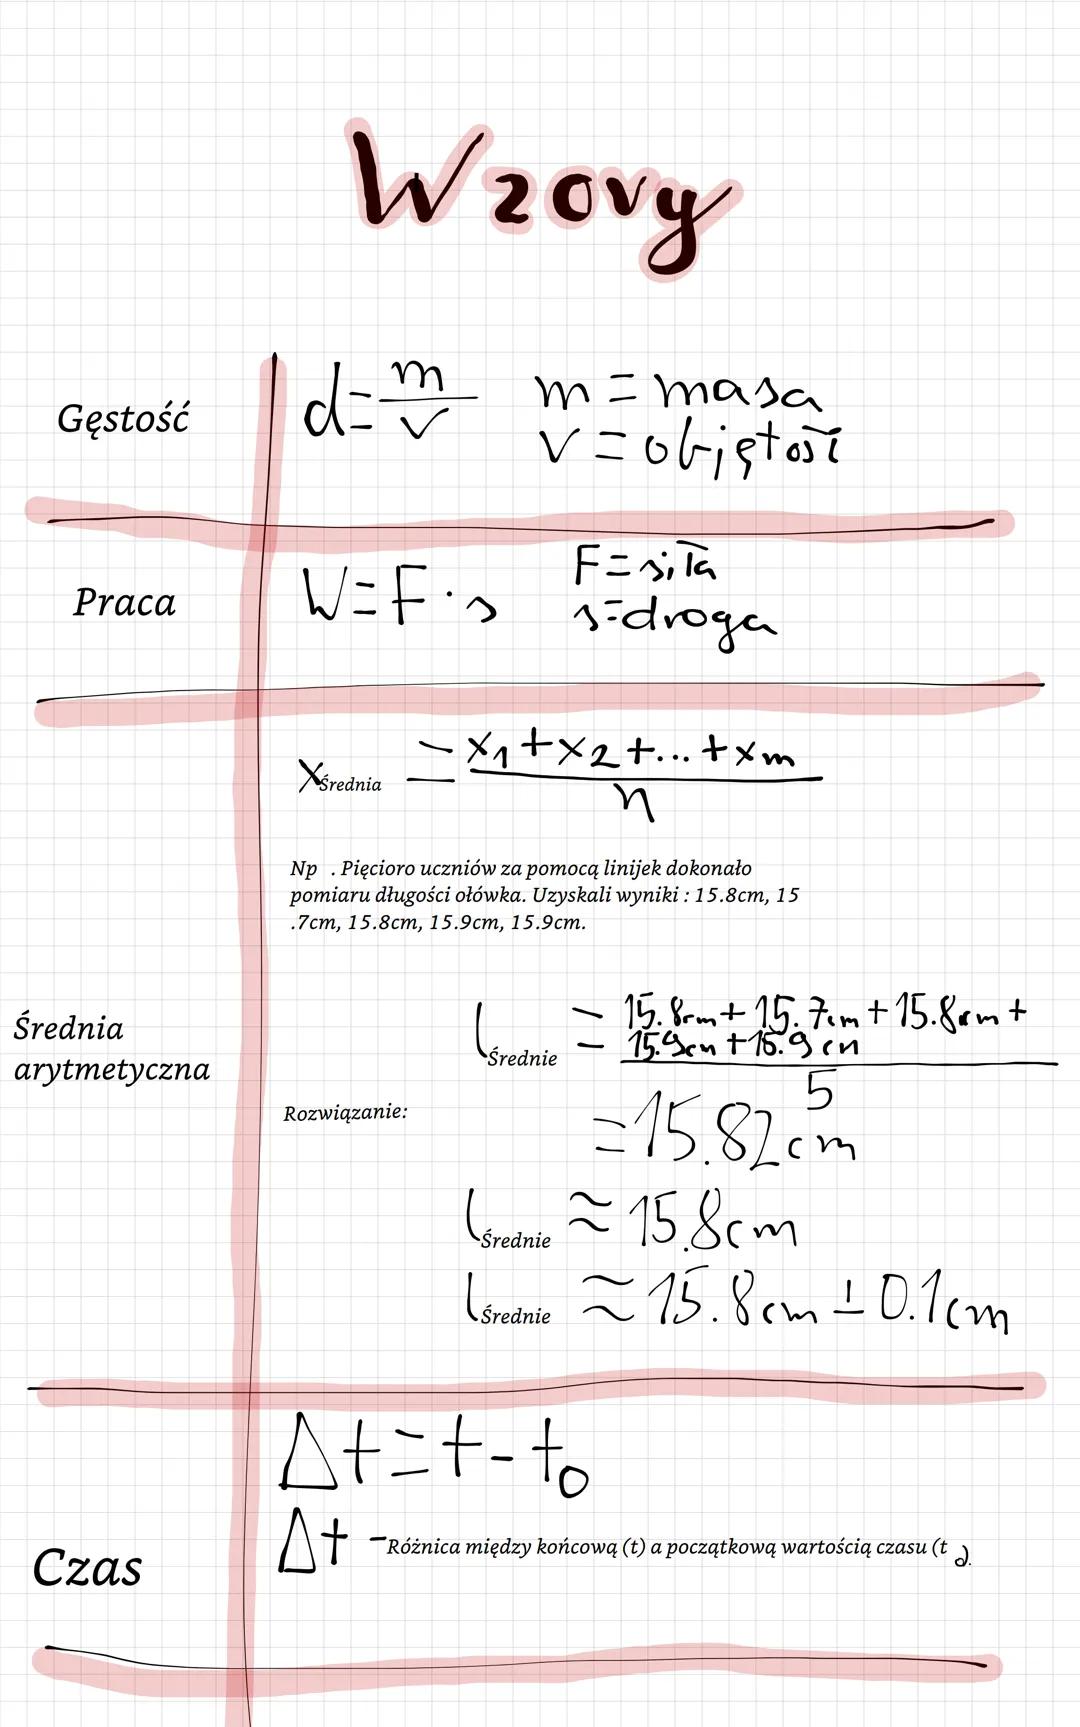 Wzory
Gęstość
d = m
v
m = masa
v = objętość
Praca
W = F · s
F = siła
s = droga
xŚrednia = x1 + x2 + ... + xm
n
Np . Pięcioro uczniów za pomocą linijek dokonało
pomiaru długości ołówka. Uzyskali wyniki : 15.8cm, 15
.7cm, 15.8cm, 15.9cm, 15.9cm.
Średnia
arytmetyczna
Rozwiązanie:
lŚrednie = 15.8cm + 15.7cm + 15.8cm +
15.9cm + 15.9cm
5
= 15.82cm
lŚrednie ≈ 15.8cm
lŚrednie ≈ 15.8cm ± 0.1cm
Czas
Δt = t - t0
Δt - Różnica między końcową (t) a początkową wartością czasu (t